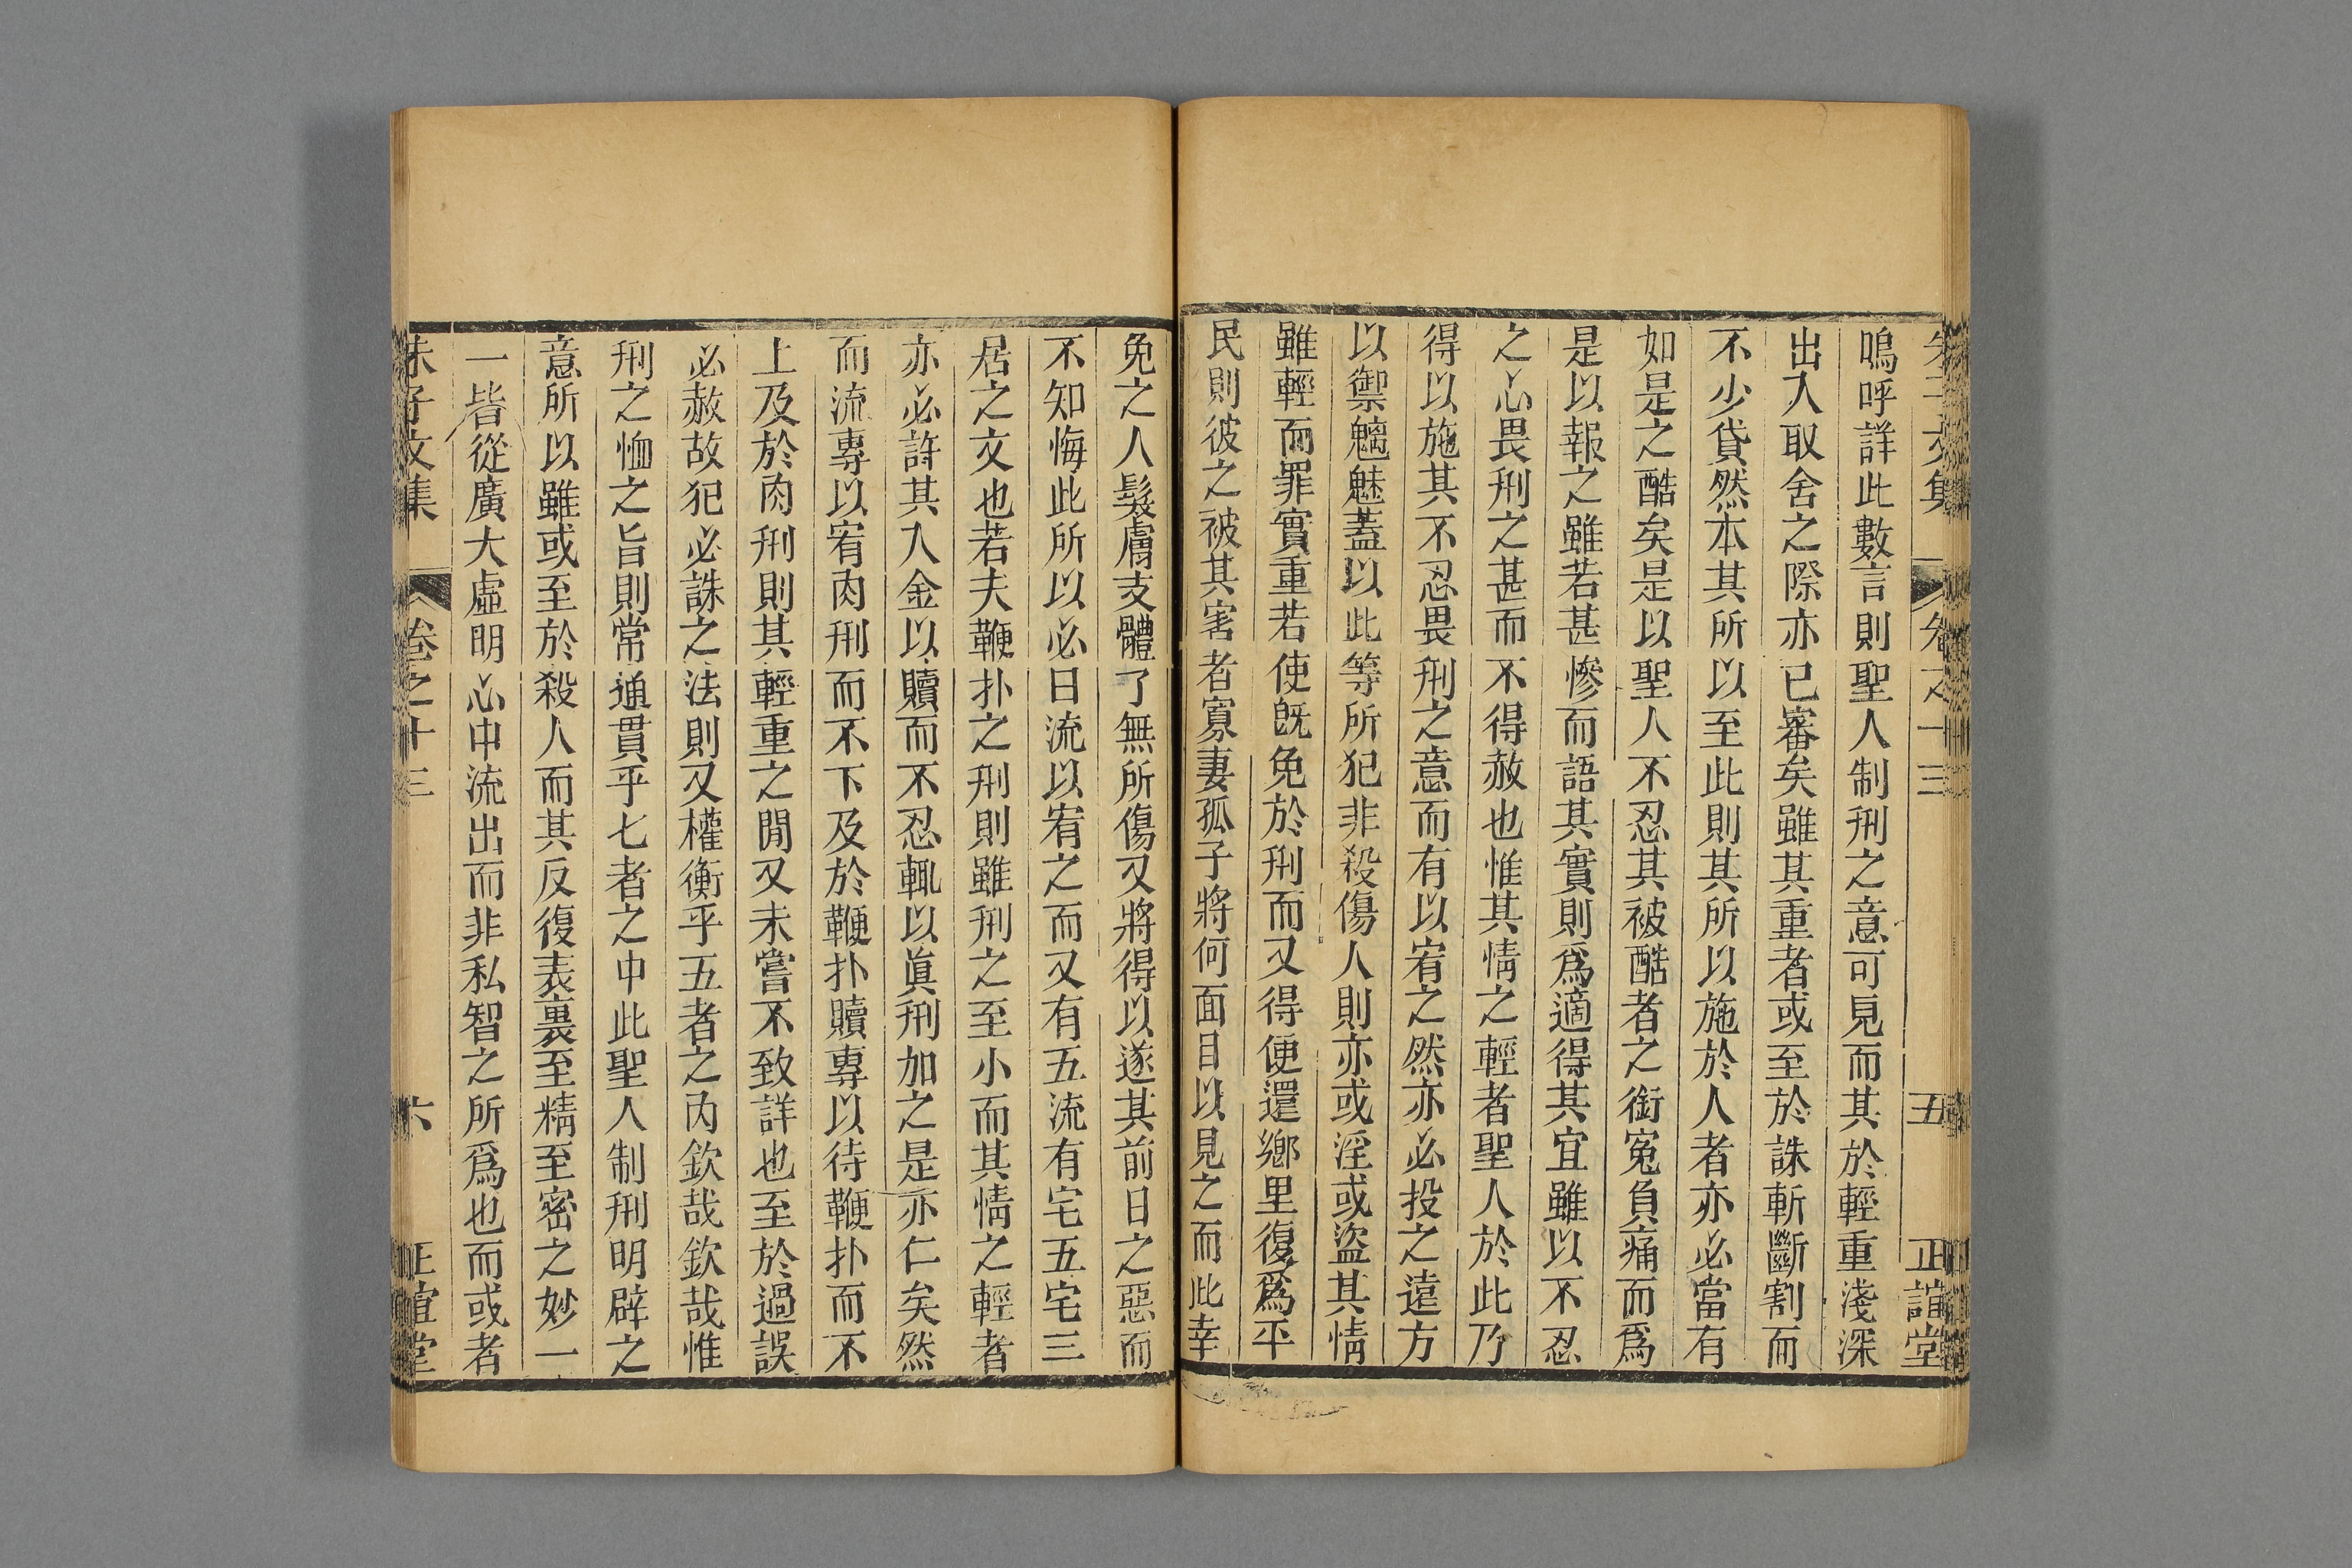 朱子文集 卷之十三 五 正誼堂
嗚呼詳此數言則聖人制刑之意可見而其於輕重淺深
出入取舍之際亦已審矣雖其重者或至於誅斬斷割而
不少貸然本其所以至此則其所以施於人者亦必當有
如是之酷矣是以聖人不忍其被酷者之銜冤負痛而爲
是以報之雖若甚慘而語其實則爲適得其宜雖以不忍
之心畏刑之甚而不得赦也惟其情之輕者聖人於此乃
得以施其不忍畏刑之意而有以宥之然亦必投之遠方
以禦魑魅蓋以此等所犯非殺傷人則亦或淫或盜其情
雖輕而罪實重若使既免於刑而又得便還鄉里復爲平
民則彼之被其害者寡妻孤子將何面目以見之而此幸
免之人髮膚支體了無所傷又將得以遂其前日之惡而
不知悔此所以必曰流以宥之而又有五流有宅五宅三
居之文也若夫鞭扑之刑則雖刑之至小而其情之輕者
亦必許其入金以贖而不忍輒以眞刑加之是亦仁矣然
而流專以宥肉刑而不下及於鞭扑贖專以待鞭扑而不
上及於肉刑則其輕重之閒又未嘗不致詳也至於過誤
必赦故犯必誅之法則又權衡乎五者之內欽哉欽哉惟
刑之恤之旨則常通貫乎七者之中此聖人制刑明辟之
意所以雖或至於殺人而其反復表裏至精至密之妙一
一皆從廣大虛明心中流出而非私智之所爲也而或者
朱子文集 卷之十三 六 正誼堂